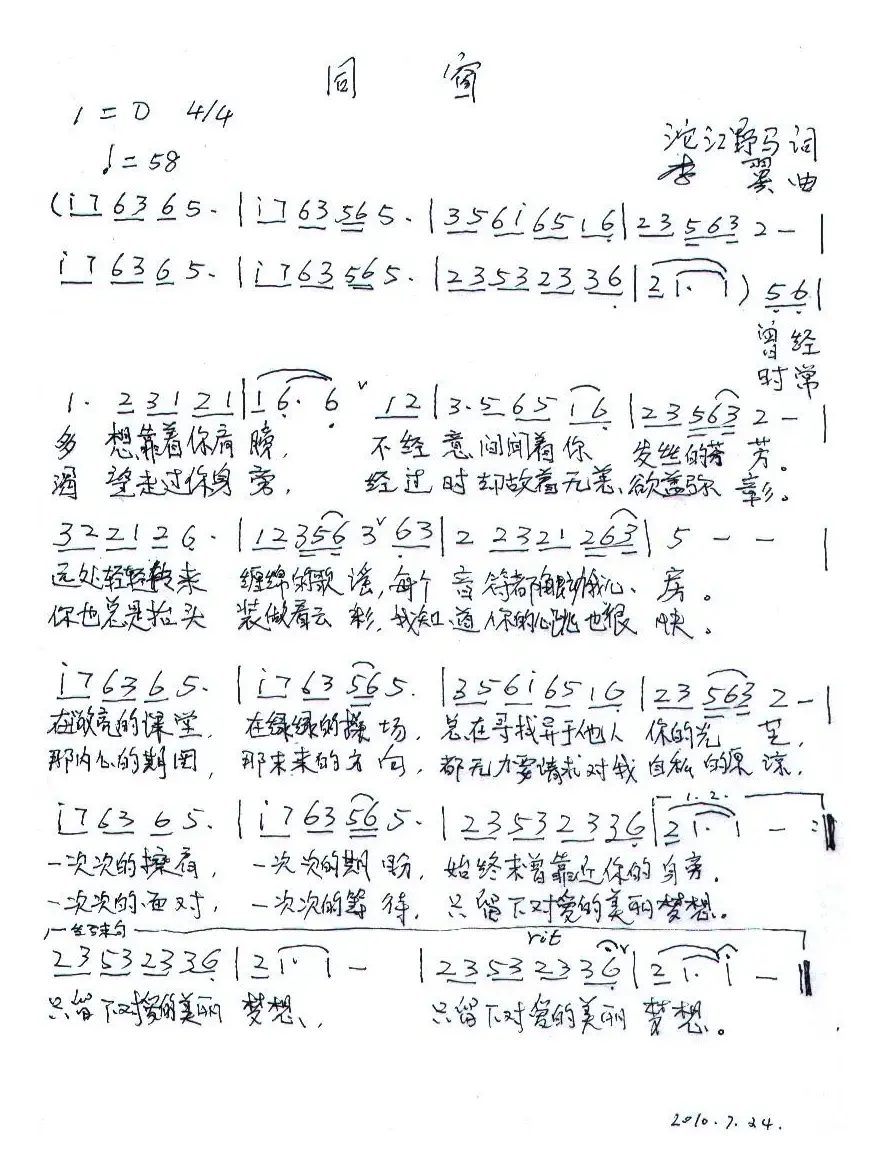 同 窗
1=D 4/4
♩=58
沱江野马词
李 翼 曲
(i7 63 65. | i7 63 56 5. | 35 6i 65 16 | 23 563 2 - |
i7 63 65. | i7 63 56 5. | 23 53 23 36 | 2 1. 1 ) 56 |
曾经
时常
1. 23 1 21 | 1 6. 6 ˅ 12 | 3. 5 65 16 | 23 563 2 - |
多 想靠着你肩 膀, 不经意间闻着你 发丝的芬 芳。
渴 望走过你身 旁, 经过时却故着无恙、欲盖弥 彰。
32 21 2 6. | 12 356 3˅ 63 | 2 23 21 263 | 5 - - |
远处轻轻传来 缠绵的歌谣,每个 音符都 我心 房。
你也总是抬头 装做看云彩,我知道你的心跳也很 快。
i7 63 6 5. | i7 63 56 5. | 35 6i 65 16 | 23 563 2 - |
在敞亮的课堂, 在绿绿的操 场, 总在寻找异于他人 你的光 芒,
那内心的期图, 那未来的方 向, 都无力要请求对我 自私的原 谅,
i7 63 6 5. | i7 63 56 5. | 23 53 23 36 | 1.2. 2 1. 1 - :‖
一次次的擦肩, 一次次的期 盼, 始终未曾靠近你的 身旁.
一次次的面对, 一次次的等 待, 只留下对爱的美丽梦想.
结束句 rit
23 53 23 36 | 2 1. 1 - | 23 53 23 36˅ | 2 1. i - ‖
只留下对爱的美丽 梦想、 只留下对爱的美丽 梦想。
2010.7.24.